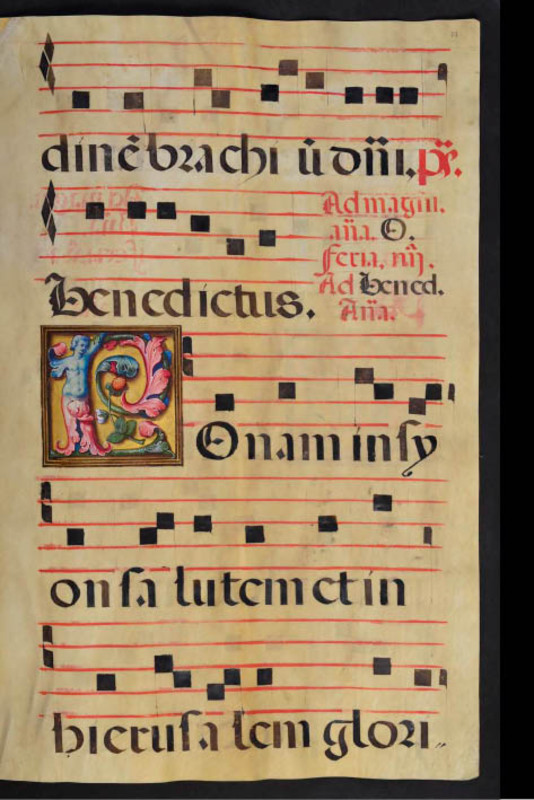 dinē brachi ū dñi. ps.
Ad magni.
aña. O.
feria. iiij.
Ad Bened.
Aña.
Benedictus.
POnam in sy
on sa lutem et in
hierusa lem glori